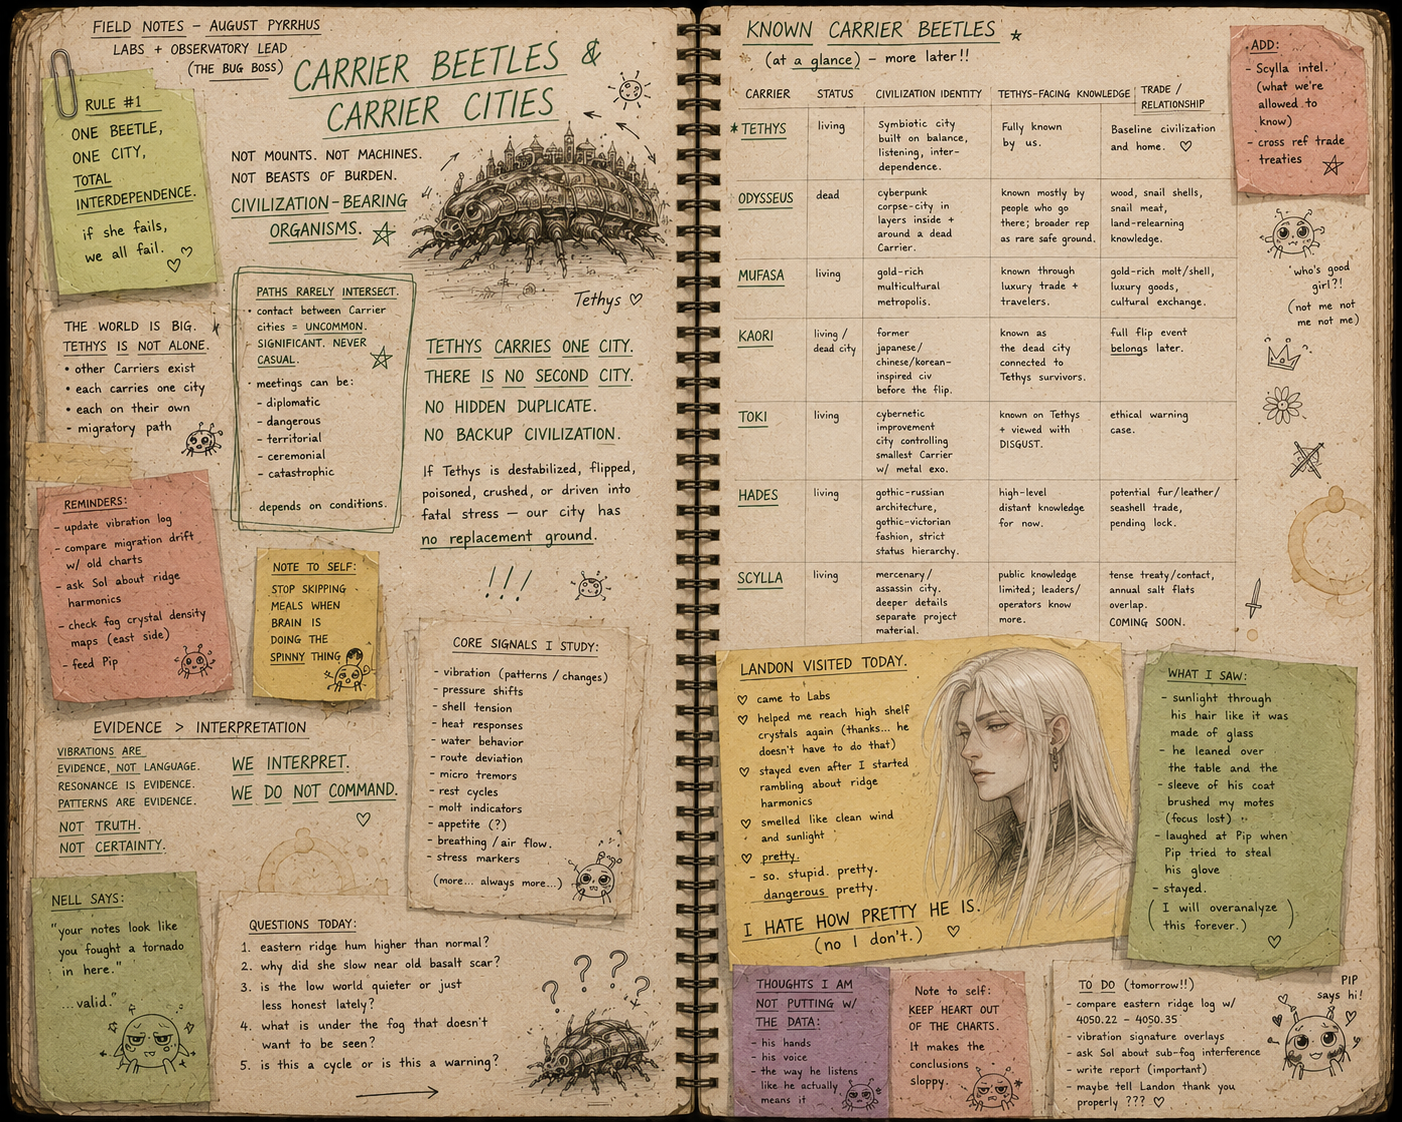 FIELD NOTES – AUGUST PYRRHUS
LABS + OBSERVATORY LEAD
(THE BUG BOSS)
CARRIER BEETLES &
CARRIER CITIES
RULE #1
ONE BEETLE,
ONE CITY,
TOTAL
INTERDEPENDENCE.
if she fails,
we all fail.
NOT MOUNTS. NOT MACHINES.
NOT BEASTS OF BURDEN.
CIVILIZATION-BEARING
ORGANISMS.
Tethys
THE WORLD IS BIG.
TETHYS IS NOT ALONE.
• other Carriers exist
• each carries one city
• each on their own
– migratory path
PATHS RARELY INTERSECT.
• contact between Carrier
cities = UNCOMMON.
SIGNIFICANT. NEVER
CASUAL.
• meetings can be:
– diplomatic
– dangerous
– territorial
– ceremonial
– catastrophic
depends on conditions.
TETHYS CARRIES ONE CITY.
THERE IS NO SECOND CITY.
NO HIDDEN DUPLICATE.
NO BACKUP CIVILIZATION.
If Tethys is destabilized, flipped,
poisoned, crushed, or driven into
fatal stress — our city has
no replacement ground.
!!!
REMINDERS:
– update vibration log
– compare migration drift
w/ old charts
– ask Sol about ridge
harmonics
– check fog crystal density
maps (east side)
– feed Pip
NOTE TO SELF:
STOP SKIPPING
MEALS WHEN
BRAIN IS
DOING THE
SPINNY THING
CORE SIGNALS I STUDY:
– vibration (patterns / changes)
– pressure shifts
– shell tension
– heat responses
– water behavior
– route deviation
– micro tremors
– rest cycles
– molt indicators
– appetite (?)
– breathing / air flow.
– stress markers
(more... always more...)
EVIDENCE > INTERPRETATION
VIBRATIONS ARE
EVIDENCE, NOT LANGUAGE.
RESONANCE IS EVIDENCE.
PATTERNS ARE EVIDENCE.
NOT TRUTH.
NOT CERTAINTY.
WE INTERPRET.
WE DO NOT COMMAND.
NELL SAYS:
"your notes look like
you fought a tornado
in here."
...valid."
QUESTIONS TODAY:
1. eastern ridge hum higher than normal?
2. why did she slow near old basalt scar?
3. is the low world quieter or just
less honest lately?
4. what is under the fog that doesn't
want to be seen?
5. is this a cycle or is this a warning?
? ? ? ?
KNOWN CARRIER BEETLES
(at a glance) – more later!!
CARRIER STATUS CIVILIZATION IDENTITY TETHYS-FACING KNOWLEDGE TRADE /
RELATIONSHIP
TETHYS living Symbiotic city Fully known Baseline civilization
built on balance, by us. and home.
listening, inter-
dependence.
ODYSSEUS dead cyberpunk known mostly by wood, snail shells,
corpse-city in people who go snail meat,
layers inside + there; broader rep land-relearning
around a dead as rare safe ground. knowledge.
Carrier.
MUFASA living gold-rich known through gold-rich molt/shell,
multicultural luxury trade + luxury goods,
metropolis. travelers. cultural exchange.
KAORI living / former known as full flip event
dead city japanese/ the dead city belongs later.
chinese/korean- connected to
inspired civ Tethys survivors.
before the flip.
TOKI living cybernetic known on Tethys ethical warning
improvement + viewed with case.
city controlling DISGUST.
smallest Carrier
w/ metal exo.
HADES living gothic-russian high-level potential fur/leather/
architecture, distant knowledge seashell trade,
gothic-victorian for now. pending lock.
fashion, strict
status hierarchy.
SCYLLA living mercenary/ public knowledge tense treaty/contact,
assassin city. limited; leaders/ annual salt flats
deeper details operators know overlap.
separate project more. COMING SOON.
material.
ADD:
– Scylla intel.
(what we're
allowed to
know)
– cross ref trade
treaties
'who's good
girl?!
(not me not
me not me)
LANDON VISITED TODAY.
came to Labs
helped me reach high shelf
crystals again (thanks... he
doesn't have to do that)
stayed even after I started
rambling about ridge
harmonics
smelled like clean wind
and sunlight
pretty.
– so. stupid. pretty.
dangerous pretty.
I HATE HOW PRETTY HE IS.
(no I don't.)
WHAT I SAW:
– sunlight through
his hair like it was
made of glass
– he leaned over
the table and the
– sleeve of his coat
brushed my motes
(focus lost)
– laughed at Pip when
Pip tried to steal
his glove
– stayed.
( I will overanalyze
this forever.)
THOUGHTS I AM
NOT PUTTING W/
THE DATA:
– his hands
– his voice
– the way he listens
like he actually
means it
Note to self:
KEEP HEART OUT
OF THE CHARTS.
It makes the
conclusions
sloppy.
TO DO (tomorrow!!)
– compare eastern ridge log w/
4050.22 – 4050.35
– vibration signature overlays
– ask Sol about sub-fog interference
– write report (important)
– maybe tell Landon thank you
properly ???
PIP
says hi!